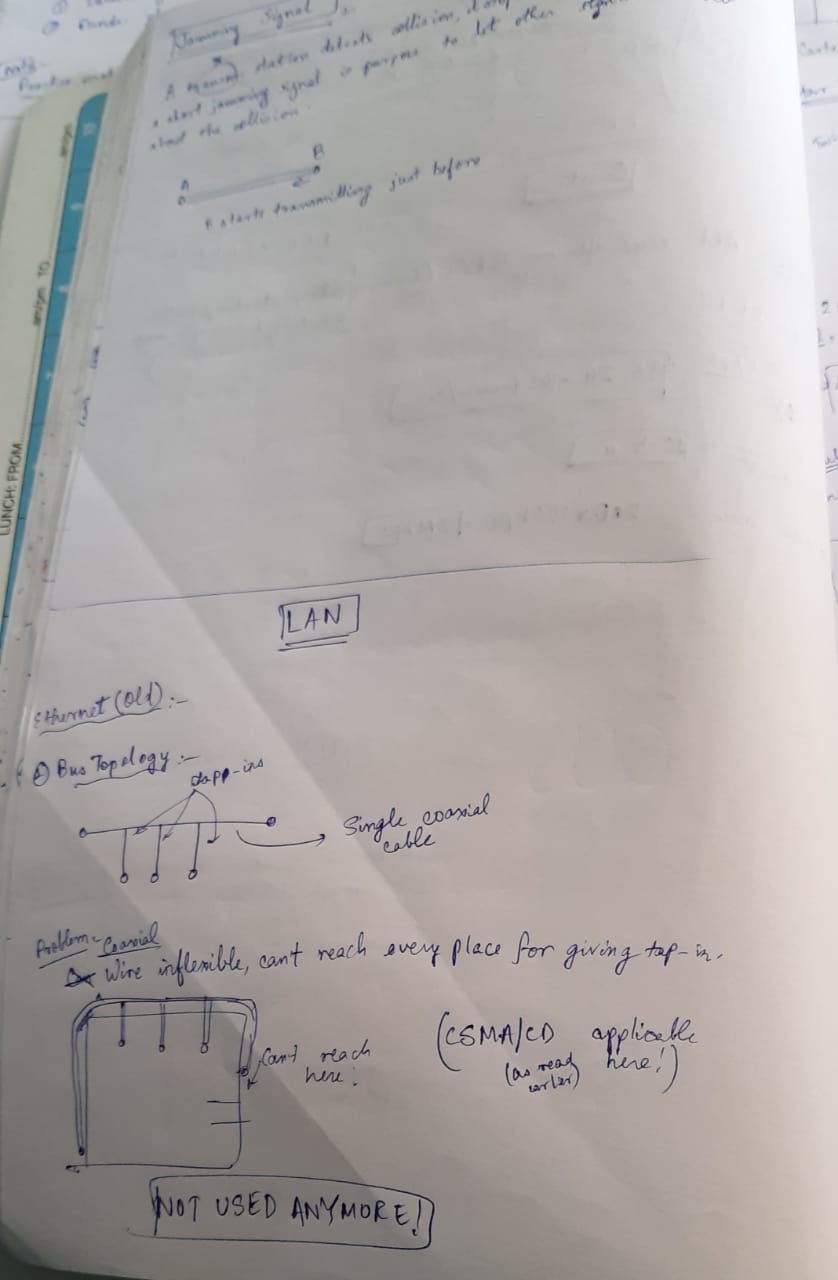 Jamming Signal
A station detects collision, it
a short jamming signal is purpose to let other
about the collision.
B
A
B starts transmitting just before
am/pm TO
LUNCH: FROM
LAN
Ethernet (Old) :-
Bus Topology :-
tapp-ins
Single coaxial
cable
Problem:- Coaxial
Wire inflexible, cant reach every place for giving tap-in.
Can't reach
here!
(CSMA/CD applicable
(as read here!)
earlier)
NOT USED ANYMORE!